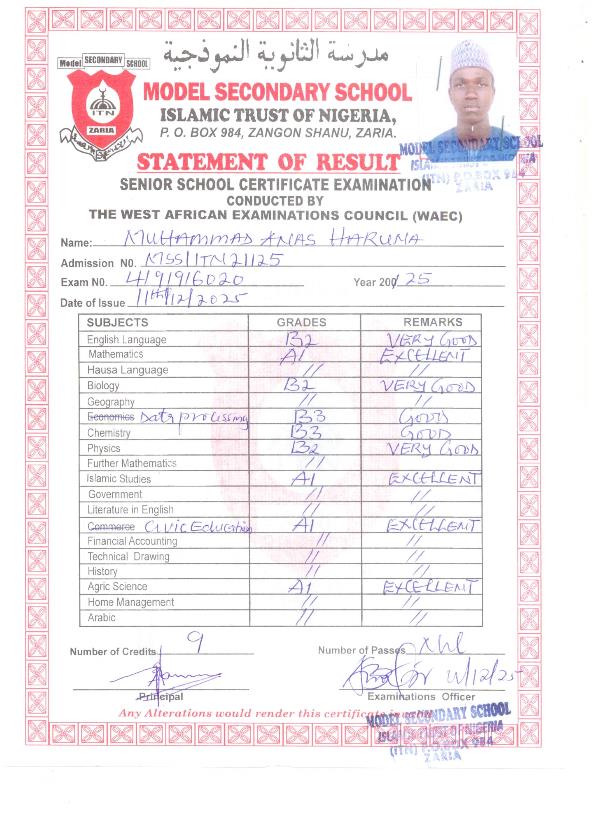 مدرسة الثانوية النموذجية
Model SECONDARY SCHOOL
ITN
ZARIA
MODEL SECONDARY SCHOOL
ISLAMIC TRUST OF NIGERIA,
P. O. BOX 984, ZANGON SHANU, ZARIA.
MODEL SECONDARY SCHOOL
(ITN) P.O.BOX 984
ZARIA
STATEMENT OF RESULT
SENIOR SCHOOL CERTIFICATE EXAMINATION
CONDUCTED BY
THE WEST AFRICAN EXAMINATIONS COUNCIL (WAEC)
Name: MUHAMMAD ANAS HARUNA
Admission N0. MSS/ITN/21/125
Exam N0. 4191916020 Year 200/25
Date of Issue 11th/12/2025
SUBJECTS GRADES REMARKS
English Language B2 VERY GOOD
Mathematics A1 EXCELLENT
Hausa Language // //
Biology B2 VERY GOOD
Geography // //
Economics Data processing B3 GOOD
Chemistry B3 GOOD
Physics B2 VERY GOOD
Further Mathematics // //
Islamic Studies A1 EXCELLENT
Government // //
Literature in English // //
Commerce Civic Education A1 EXCELLENT
Financial Accounting // //
Technical Drawing // //
History // //
Agric Science A1 EXCELLENT
Home Management // //
Arabic // //
Number of Credits 9 Number of Passes
11/12/25
Principal Examinations Officer
Any Alterations would render this certificate
MODEL SECONDARY SCHOOL
ISLAMIC TRUST OF NIGERIA
(ITN) P.O.BOX 984
ZARIA